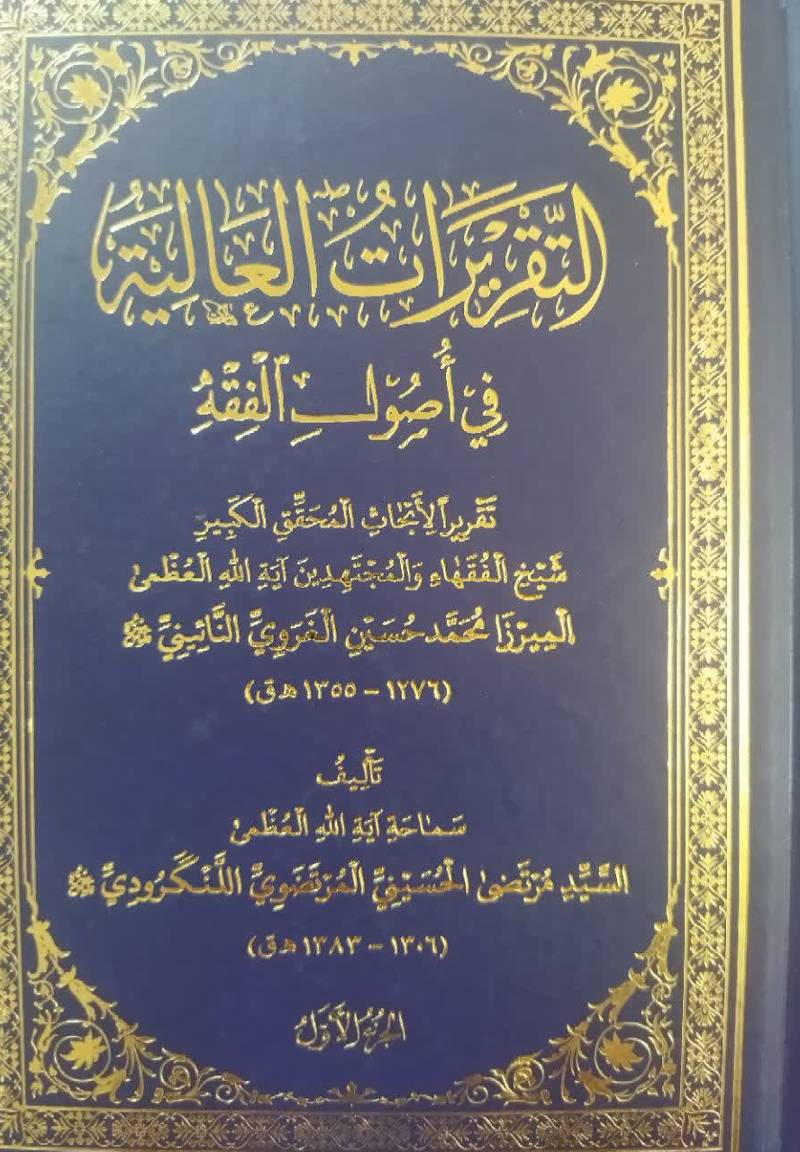 التَّقْرِيْرَاتُ العَالِيَةُ
فِي أُصُولِ الْفِقْهِ
تَقْرِيرًا لِأَبْحَاثِ الْمُحَقِّقِ الْكَبِيرِ
شَيْخِ الْفُقَهَاءِ وَالْمُجْتَهِدِينَ آيَةِ اللهِ الْعُظْمىٰ
الْمِيرْزَا مُحَمَّد حُسَيْنِ الْغَرَوِيِّ النَّائِينِيِّ
(١٢٧٦ - ١٣٥٥ ه‍ ق)
تَأْلِيفُ
سَمَاحَةِ آيَةِ اللهِ الْعُظْمىٰ
السَّيِّدِ مُرْتَضىٰ الْحُسَيْنِيِّ الْمُرْتَضَوِيِّ اللَّنْگَرُودِيِّ
(١٣٠٦ - ١٣٨٣ ه‍ ق)
الجُزْءُ الأَوَّلُ